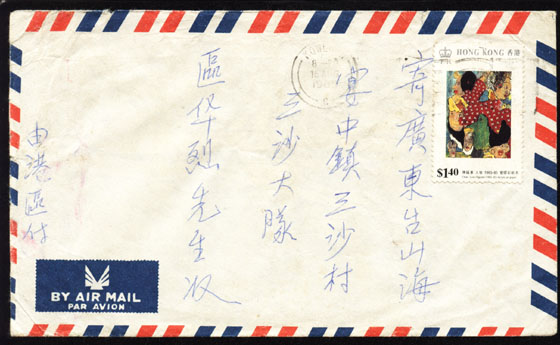 HONG KONG 香港
$1.40
寄廣東台山海
宴中鎮三沙村
三沙大
區华烈先生收
由港區付
BY AIR MAIL
PAR AVION